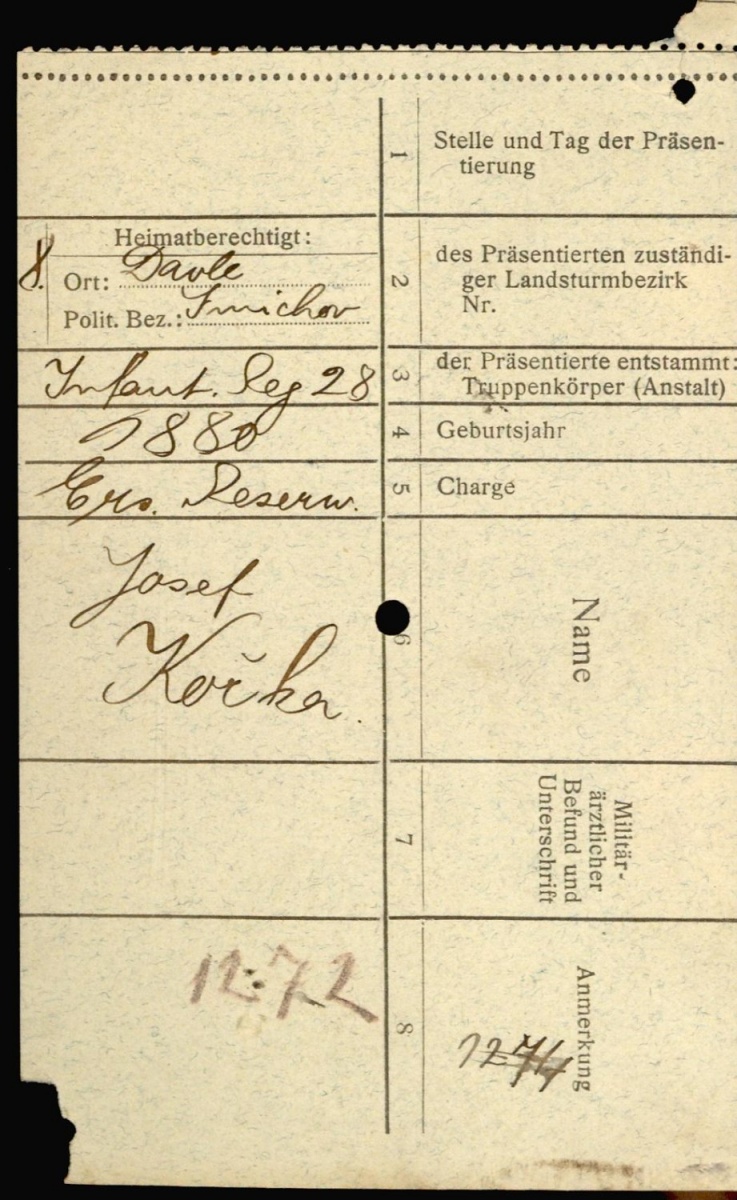 1
Stelle und Tag der Präsen-
tierung
8.
Heimatberechtigt:
Ort: Davle
Polit. Bez.: Smichov
2
des Präsentierten zuständi-
ger Landsturmbezirk
Nr.
Infant. Reg 28
3
der Präsentierte entstammt:
Truppenkörper (Anstalt)
1880
4
Geburtsjahr
Ers. Reserw.
5
Charge
Josef
Kořka.
6
Name
7
Militär-
ärztlicher
Befund und
Unterschrift
1272
8
Anmerkung